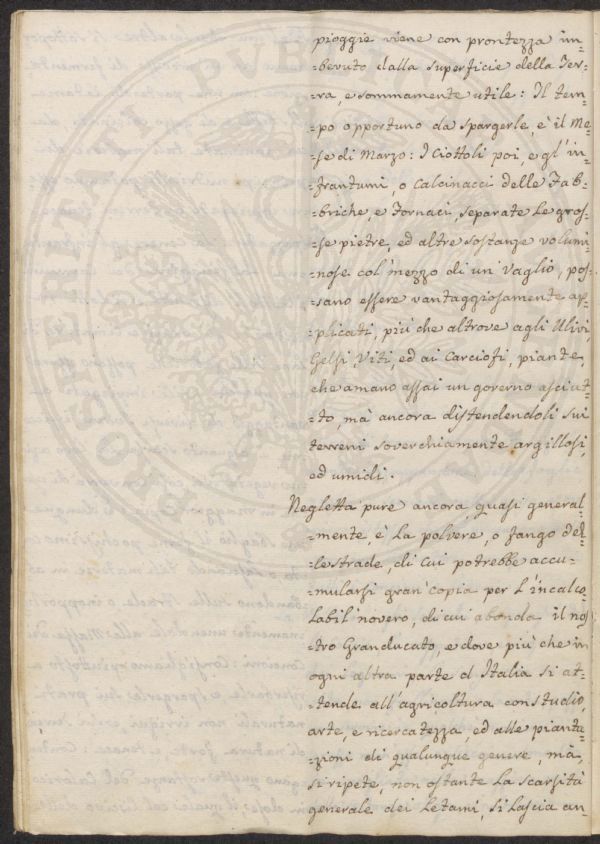 pioggie viene con prontezza im-
=bevuto dalla superficie della Ter-
=ra, e sommamente utile: Il tem-
=po opportuno da spargerle, è il Me-
=se di Marzo: I Ciottoli poi, e gl'in-
=frantumi, o Calcinacci delle Fab-
=briche, e Fornaci, separate Le gros-
=se pietre, ed altre sostanze volumi-
nose col' mezzo di un Vaglio, pos-
=sano essere vantaggiosamente ap-
=plicati, più che altrove agli Ulivi,
Gelsi, Viti, ed ai Carciofi, piante,
che amano assai un governo asciut-
=to, mà ancora distendendoli sui
terreni soverchiamente argillosi,
ed umidi.
Negletta pure ancora, quasi general-
=mente, è La polvere, o fango del-
=le strade, di cui potrebbe accu-
=mularsi gran' copia per L'incalco
Labil'novero, di cui abonda il nos
=tro Granducato, e dove più che in
ogni altra parte d'Italia si at-
=tende all'agricoltura con studio,
arte, e ricercatezza, ed alle pianta-
=zioni di qualunque genere, mà,
si ripete, non ostante La scarsità
generale dei Letami, si Lascia an-
PVBLI
PROSPERITATI